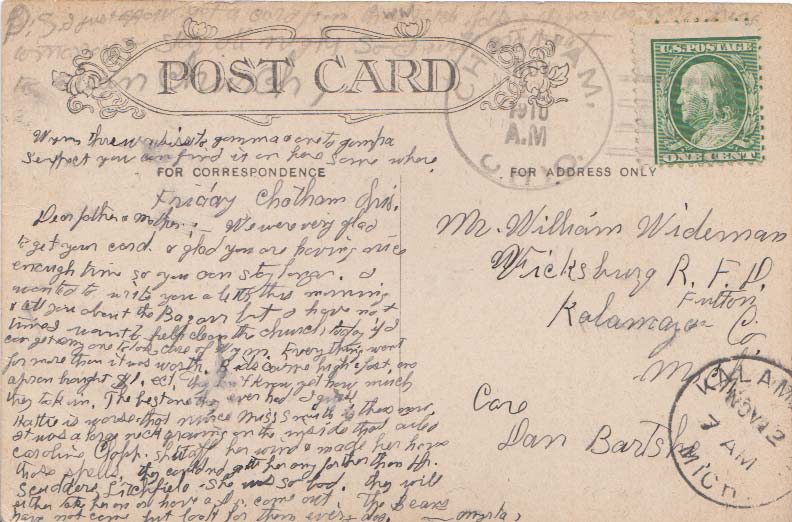 P.S. I just now got a card from
POST CARD
CHATHAM.
1910
A.M
OHIO.
U.S. POSTAGE
ONE CENT
Wym threw a kiss to gamma & one to gampa
Suspect you can find it on here some where
FOR CORRESPONDENCE
FOR ADDRESS ONLY
Friday Chatham
Dear father & mother:- We were very glad
to get your card. & glad you are having a nice
enough time so you can stay longer. I
wanted to write you a letter this morning
& tell you about the Bazaar but I have not
time I want to help clean the church today if I
can get any one to take care of Wym. Everything went
for more than it was worth. high
apron bought know yet how much
they take in. The best one they ever had I guess
Hattie is worse that nurse Miss Smith is there now
It was a large neck growing on the inside that ailed
Caroline Clapp. shut off her wind & made her have
those spells. they couldnt get her any further than
Scudders, Litchfield she was so bad. they will
either take her on or have a come out. The Bears
have not come but look for them every day. Myrta,
Mr. William Wideman
Vicksburg R. F. D.
Fulton
Kalamazoo Co.
Care
Dan Bartsh
KALAM
NOV 12
7 AM
MICH.